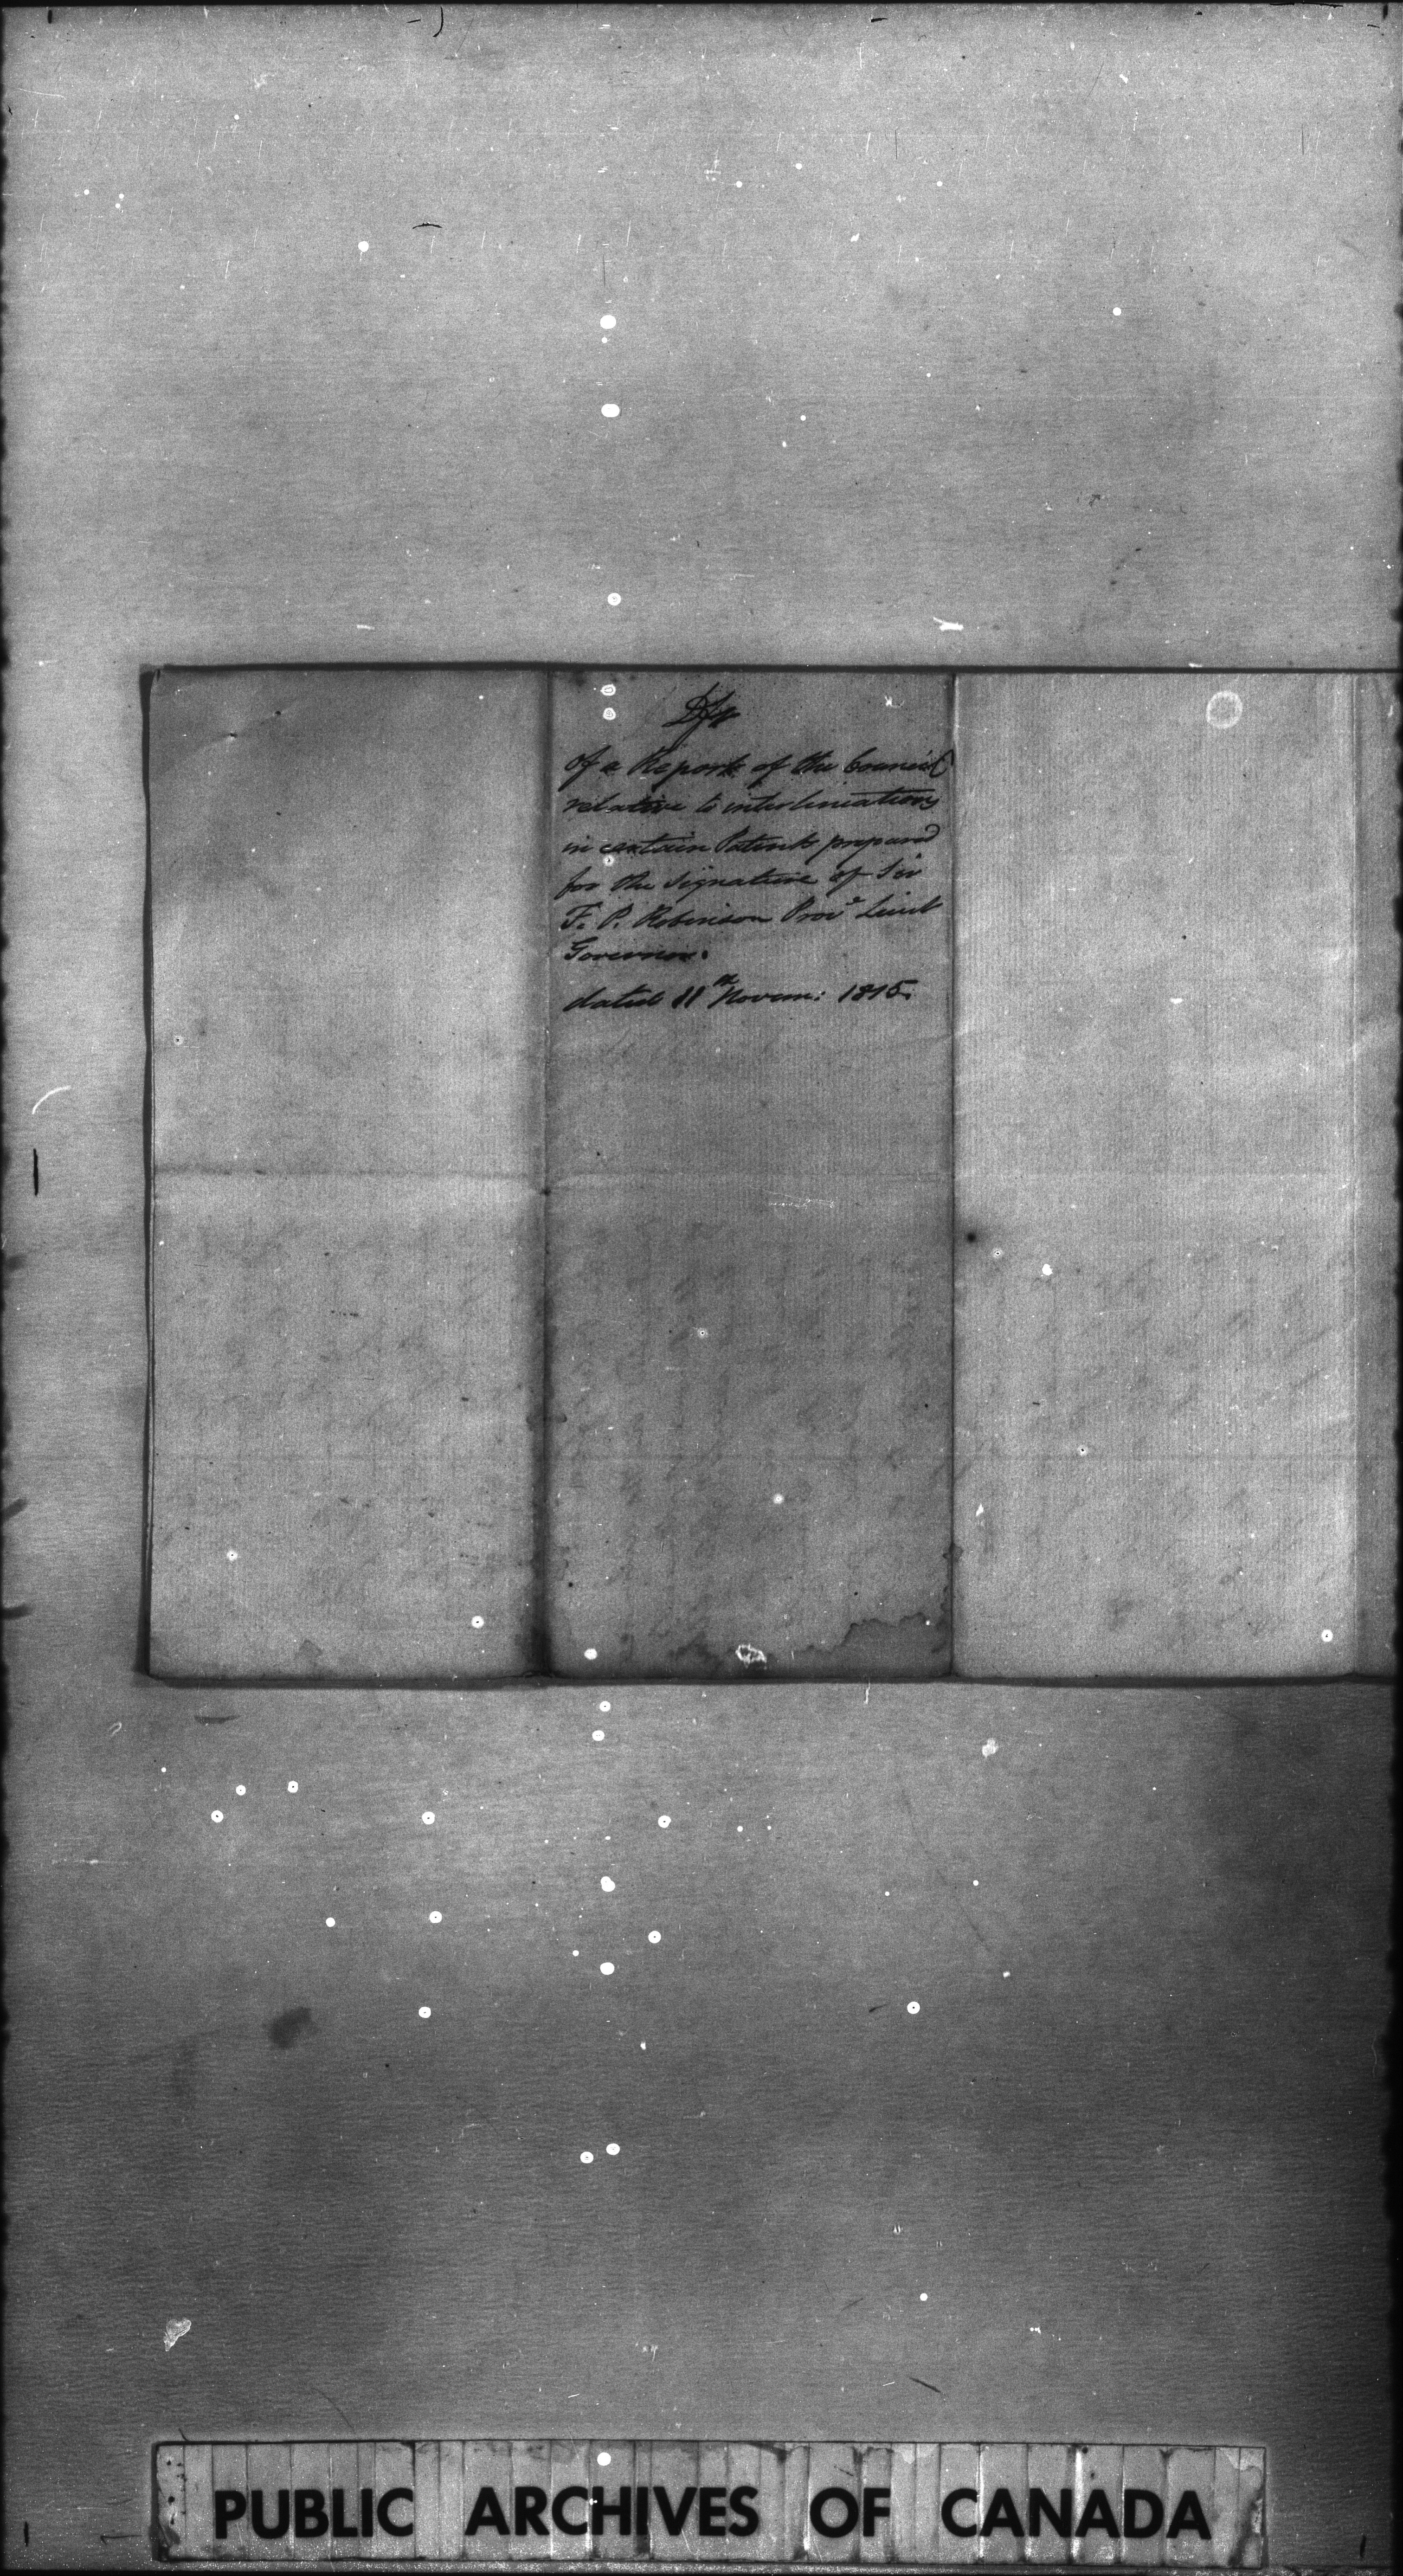 Dft
of a Report of the Council
relative to interlineations
in certain Patents prepared
for the signature of Sir
F. P. Robinson Prov^l Lieut
Governor.
dated 11th Novem: 1815.
PUBLIC ARCHIVES OF CANADA